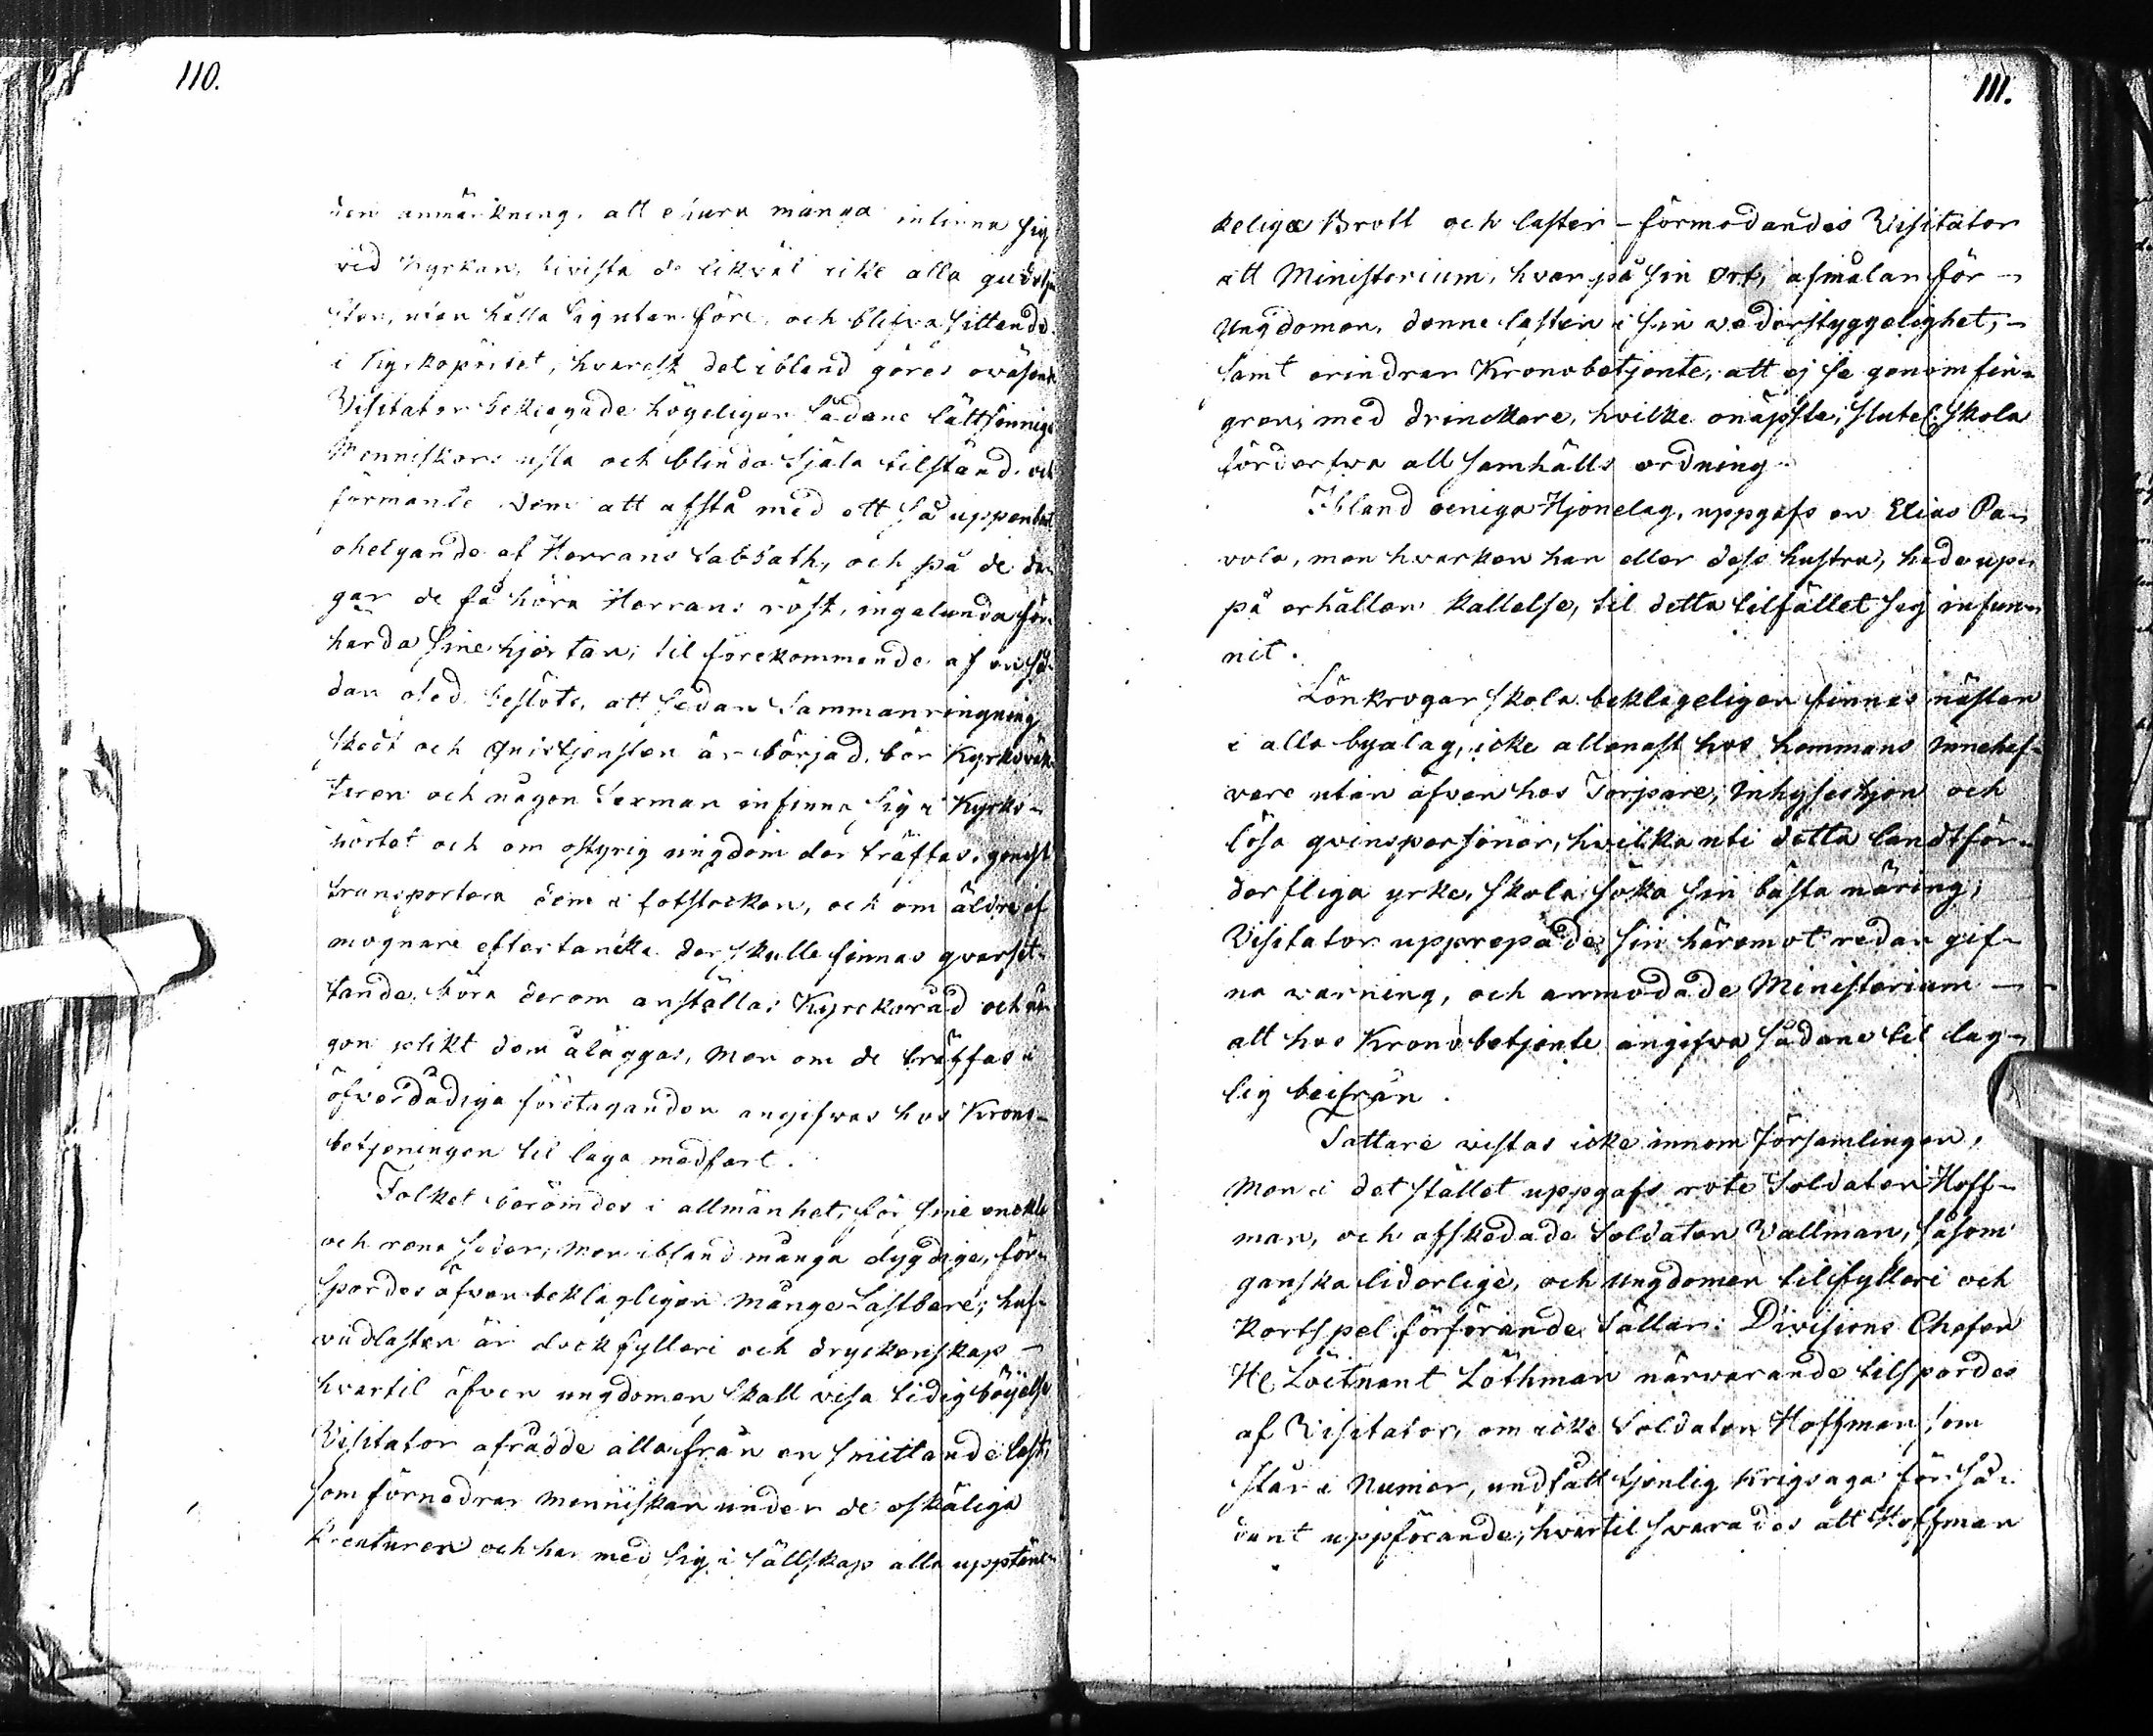 110.
den anmärkning, att ehuru många infinna sig
vid kyrkan, bivista de likväl icke alla gudstjen
sten, utan hålla sig utan före, och blifva sittande
i Kyrkopörtet, hvarest det ibland göres oväsende
Visitator beklagade högeligen sådane lättsinnige
Menniskors usla och blinda Själa tilstånd, och
förmante dem att afstå med ett så uppenbart
ohelgande af Herrans Sabbath, och på de da-
gar de få höra Herrans röst, ingalunda för-
härda sine hjertan; til förekommande af en så-
dan osed, beslöts, att sedan Sammanringning
skedt och Gudstjensten är börjad, bör Kyrkoväk-
taren och någon Sexman infinna sig i Kyrko-
pörtet och om ostyrig ungdom der träffas, genast
transportera dem i fotstocken, och om äldre af
mognare eftertancka der skulle finnas qvarsit-
tande, böra derom anställas Kyrckoråd och nå-
gon plikt dem åläggas, men om de träffas i
öfverdådiga företaganden angifvas hos Krono-
betjeningen til laga medfart.
Folket berömdes i allmänhet, för sine enckla
och rena seder; men ibland många dygdige, för-
spordes äfven beklagligen månge Lastbare; huf-
vudlasten är dock fylleri och dryckenskap –
hvartil äfven ungdomen skall visa tidig böjelse
Visitator afrådde alla ifrån en smittande last,
som förnedrar menniskan under de oskäliga
Kreaturen och har med sig i sällskap alla upptänc-
111.
keliga Brott och laster – förmodandes Visitator
att Ministerium, hvar på sin ort, afmålar för –
Ungdomen, denne lasten i sin vederstyggelighet, –
samt erindrar Kronobetjente, att ej se genom fin-
gren med drinckare, hvilke onäpste, slutel. skola
förderfva all samhälls ordning.
Ibland oeniga Hjonelag, uppgafs en Elias Pa-
vola, men hvarken han eller dess hustru, hade upp-
på erhållen kallelse, til detta tilfället sig infun-
nit.
Lönkrogar skola beklageligen finnas nästan
i alla byalag, icke allenast hos hemmans Innehaf-
vare utan äfven hos Torpare, Inhyseshjon och
lösa qvinspersoner, hvilka uti detta landtför-
derfliga yrke, skola söka sin bästa näring;
Visitator upprepade sin häremot redan gif-
na varning, och anmodade Ministerium –
att hos Kronobetjente angifva sådane til lag-
lig beifran.
Tattare vistas icke innom Församlingen,
Men i det stället uppgafs rote Soldaten Hoff-
man, och afskedade Soldaten Vallman, såsom
ganska liderlige, och Ungdomen til fylleri och
Kortspel förförande sällar: Divisions Chefen
H. Löitnant Löthman närvarande tilspordes
af Visitator, om icke Soldaten Hoffman, som
står i Numer, undfått tjenlig Krigsaga för så-
dant uppförande; hvartil svarades att Hoffman